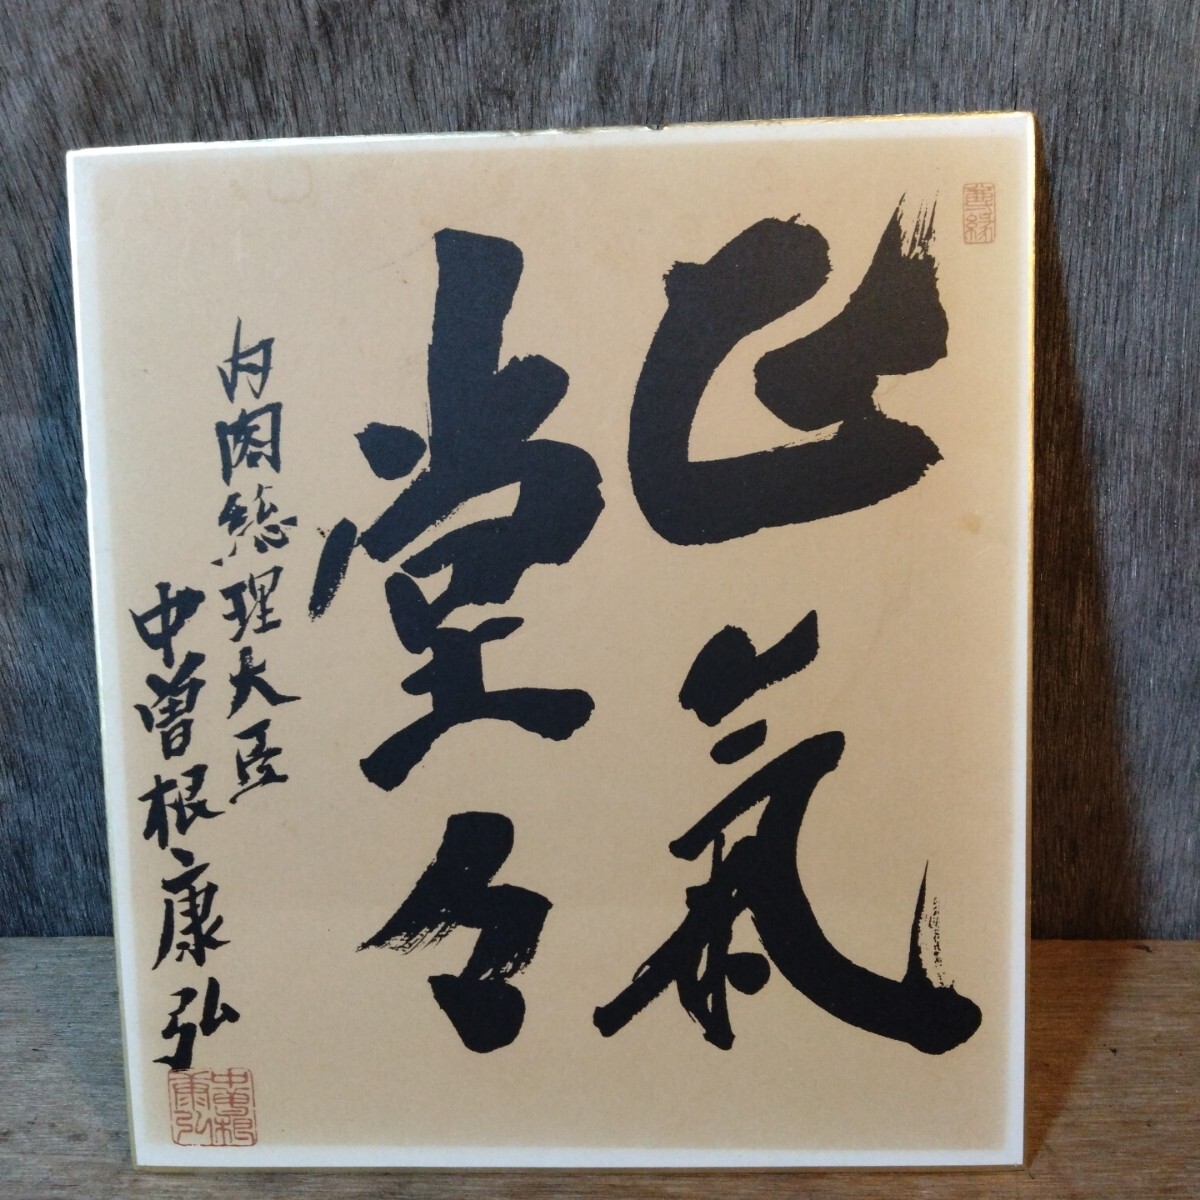 正氣
堂々
内閣総理大臣
中曽根康弘
中曽根
康弘